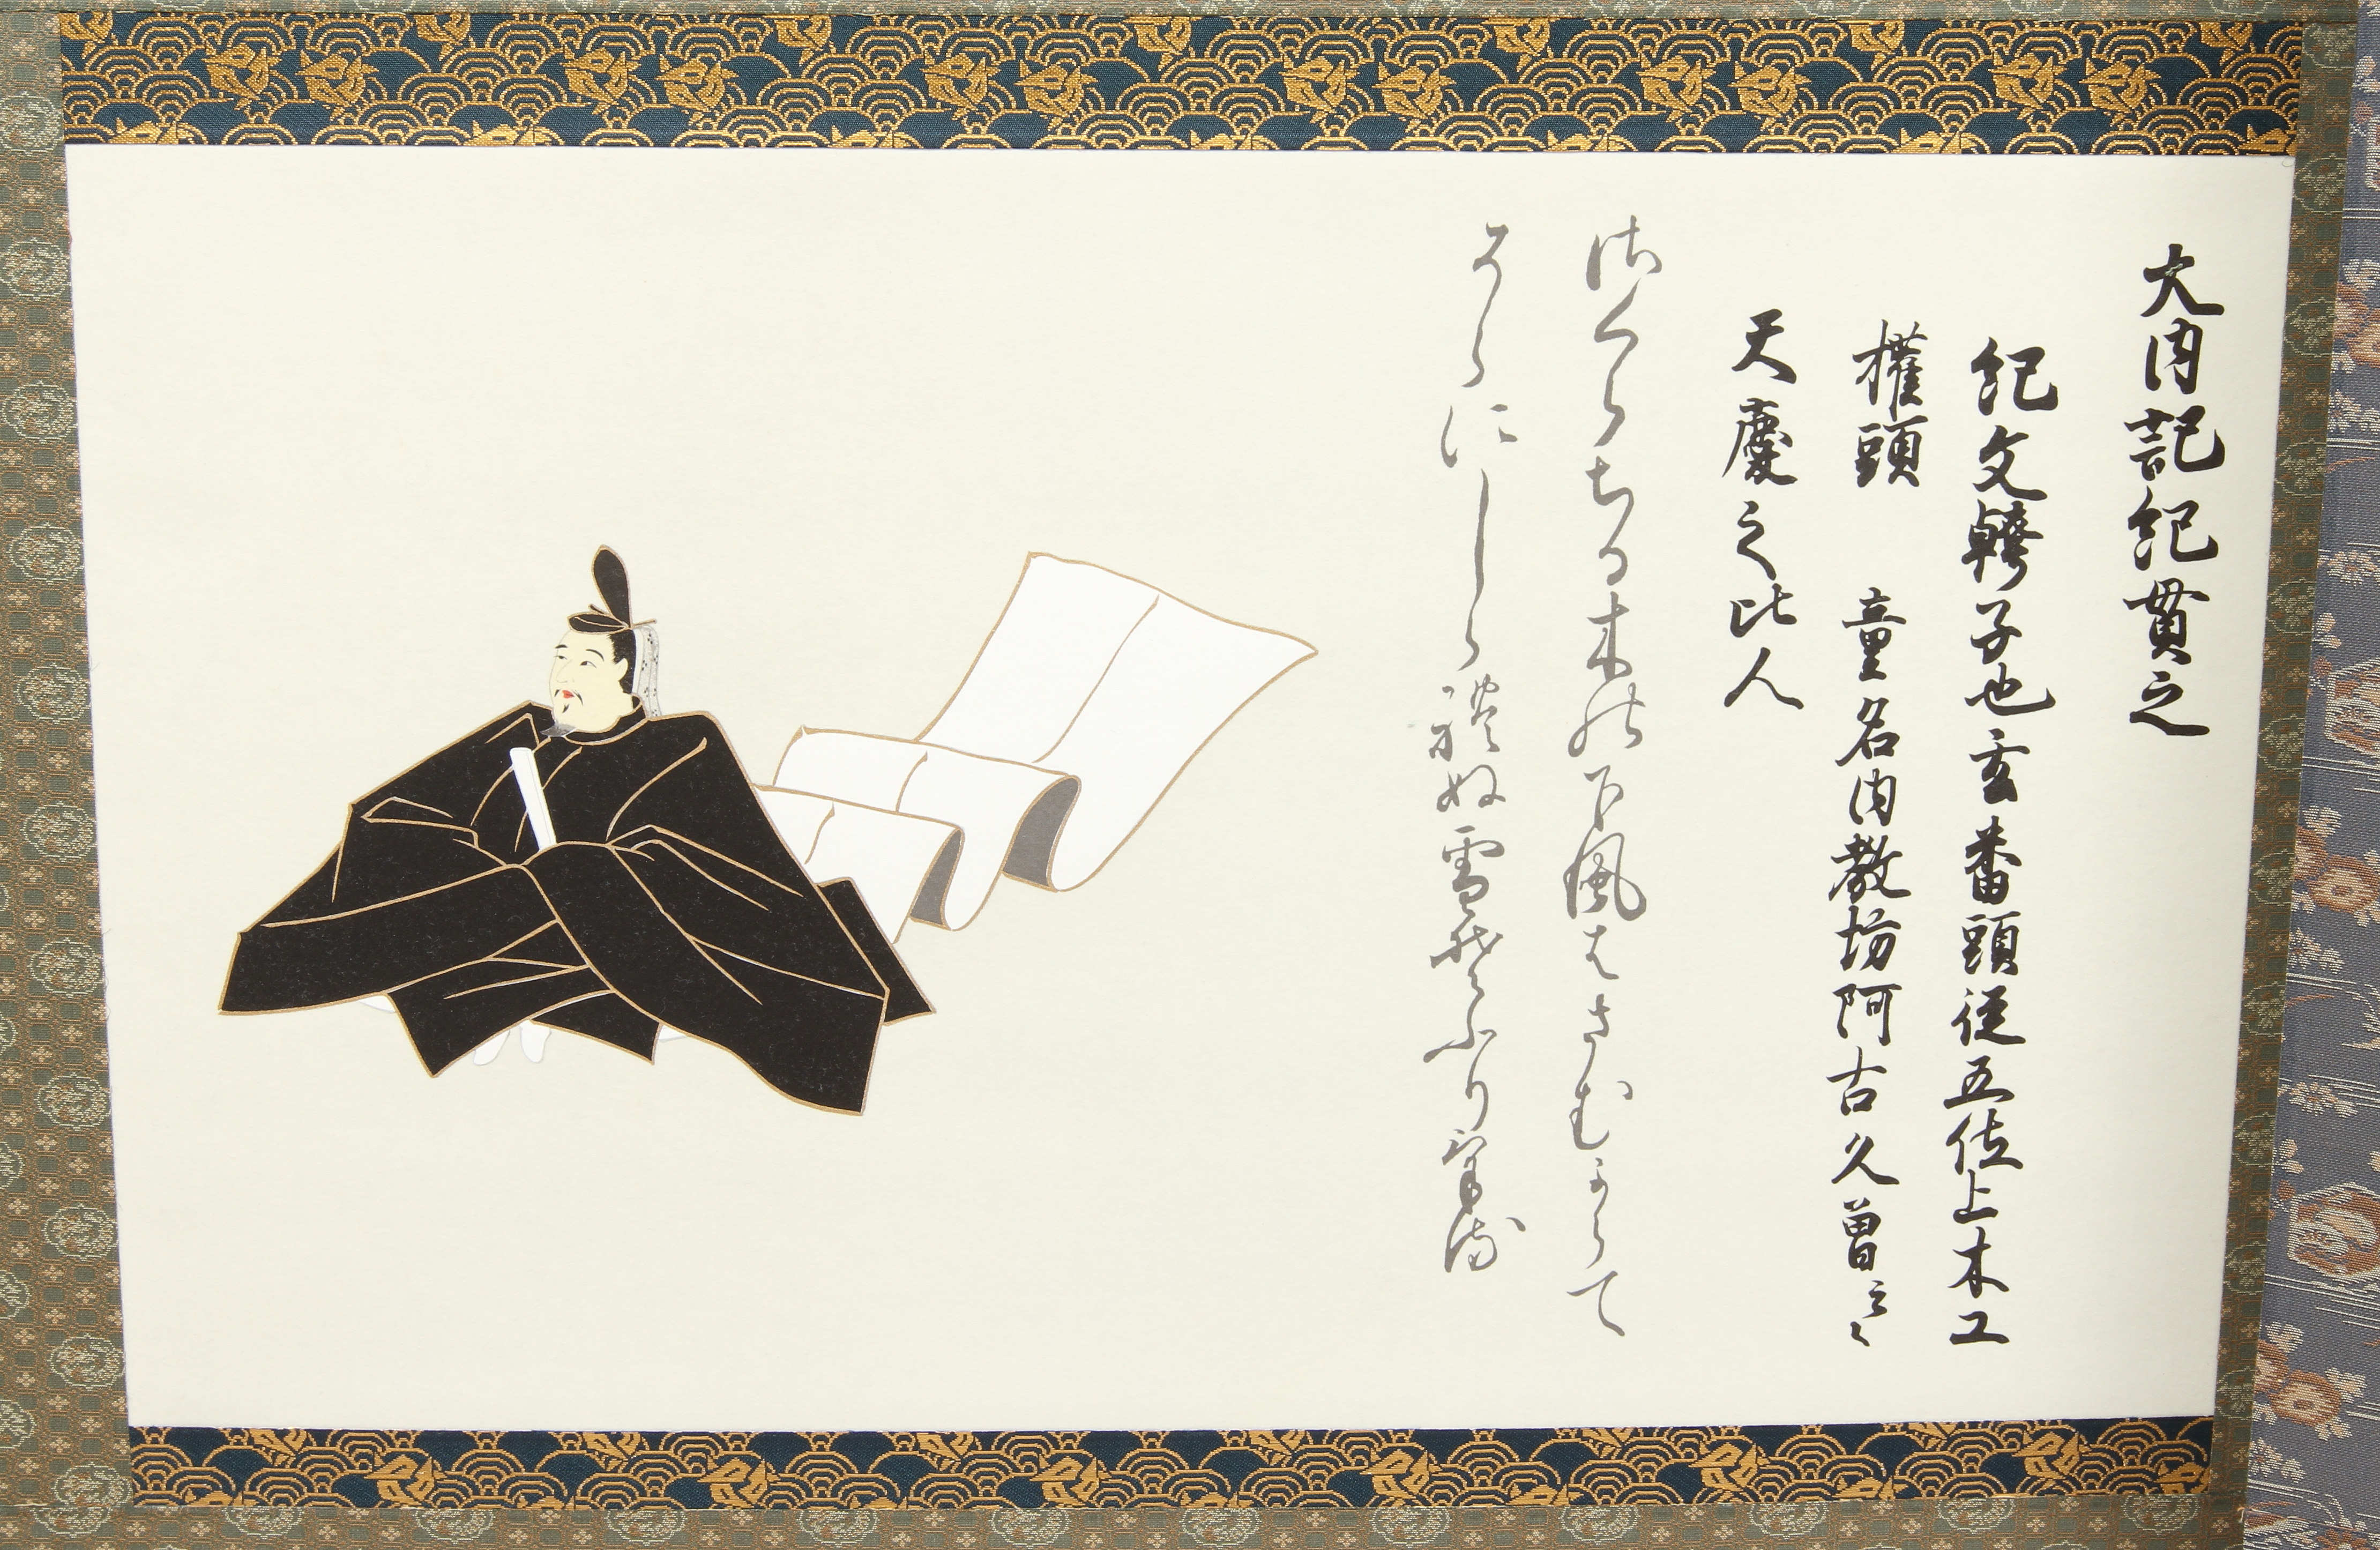 大内記紀貫之
紀文幹子也玄番頭従五位上木工
權頭 童名内教坊阿古久曽云々
天慶之比人
さくらちる木の下風はさむからて
そらにしられぬ雪そふりける